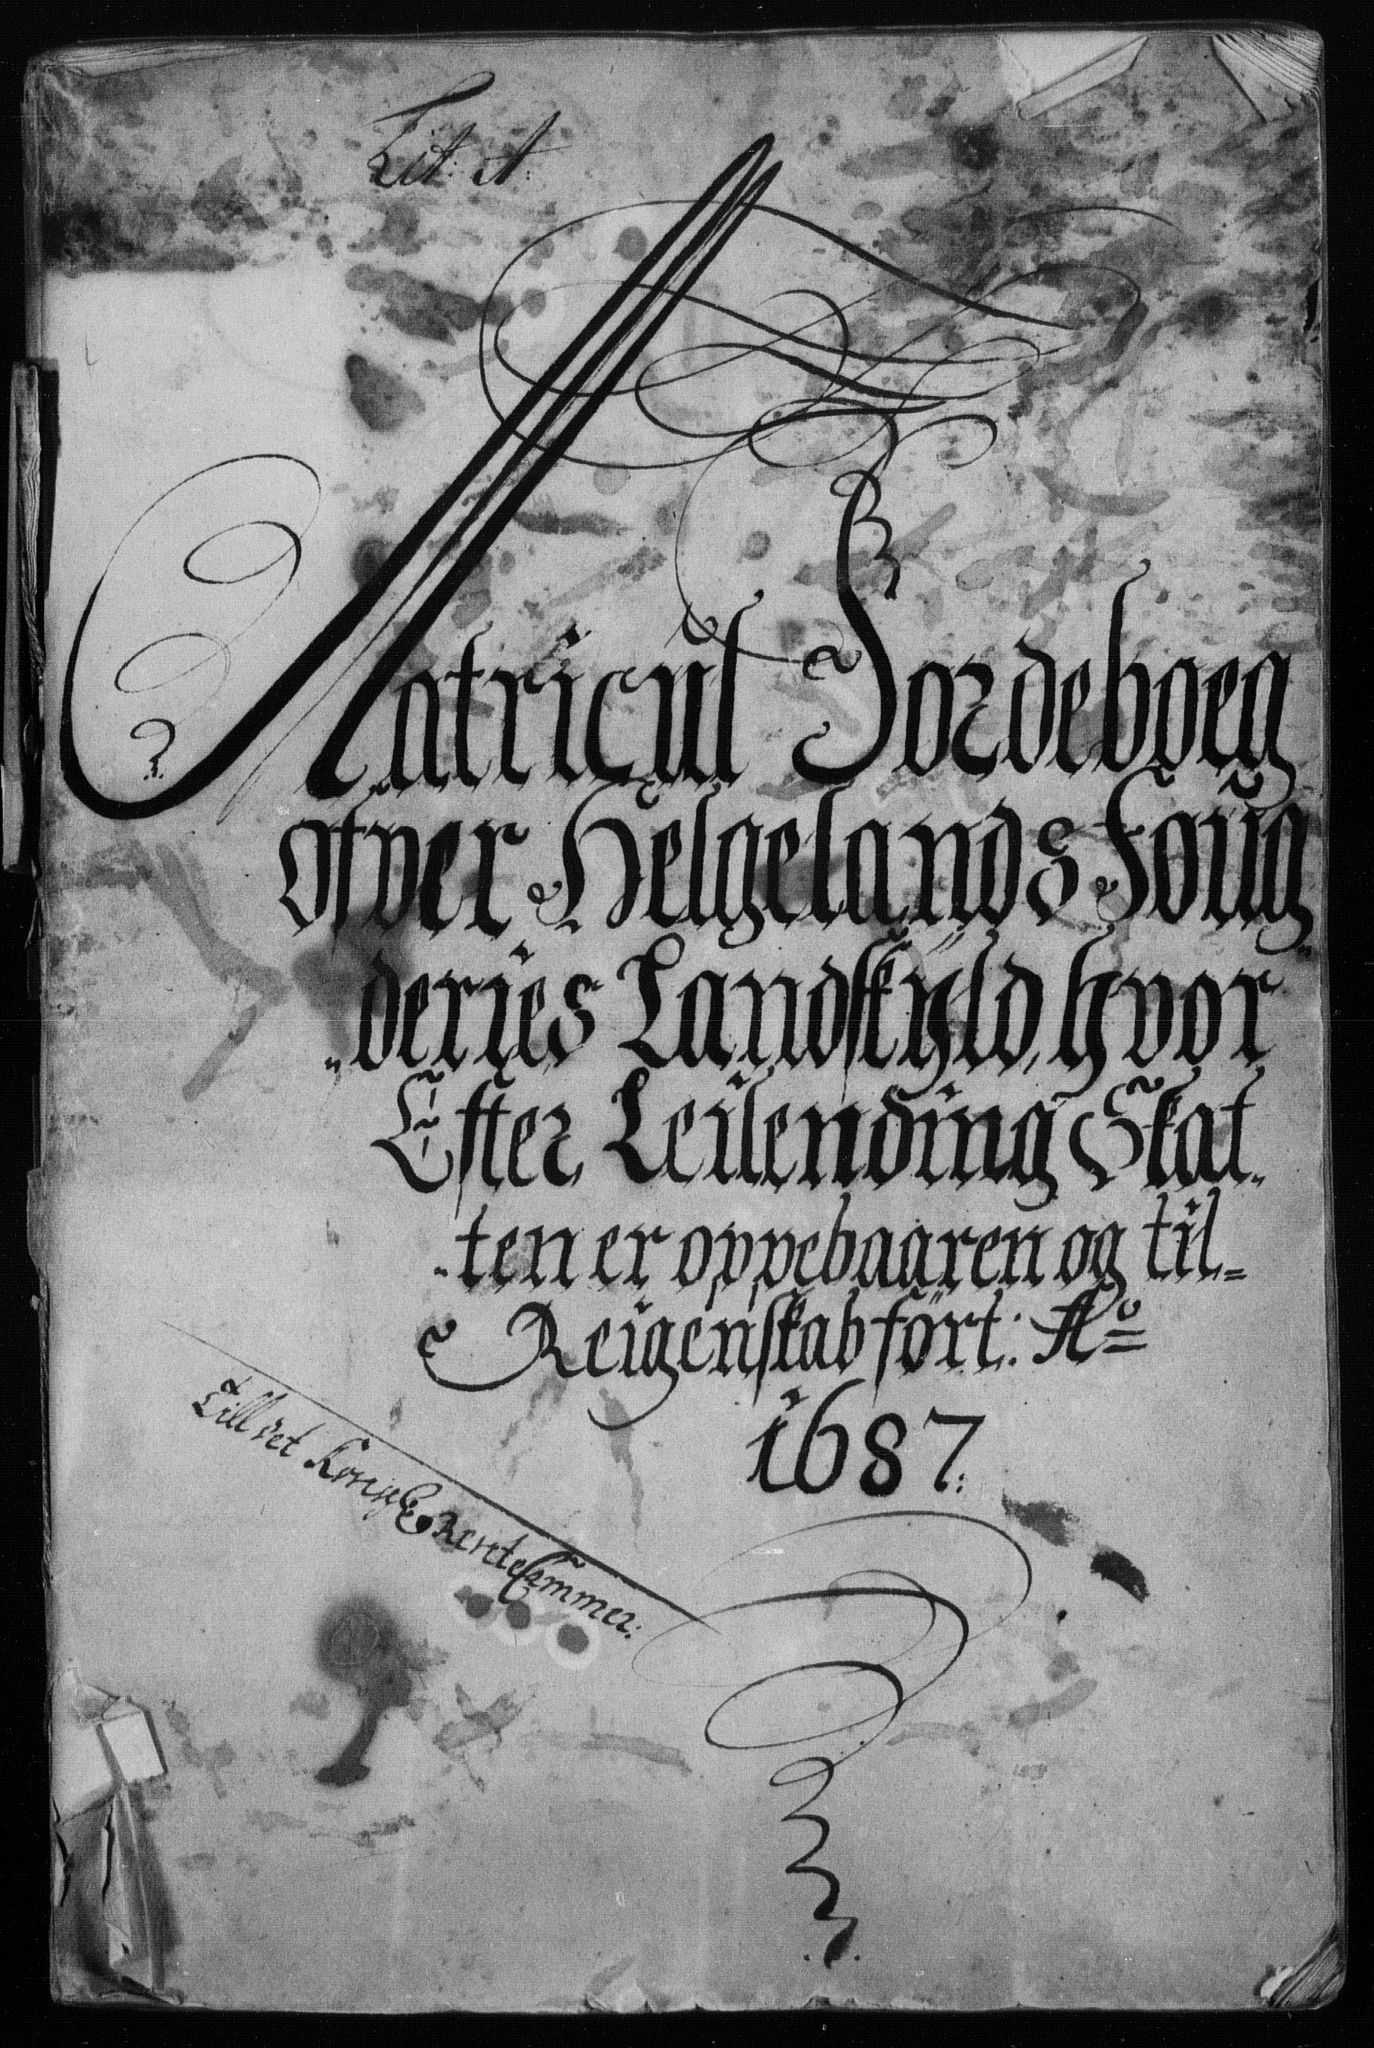 Lit: A:
Matricul Jordeboeg
ofver Helgelands Foug„
„deries Landskÿld, hvor
Efter Leilending Skat„
„ten er oppebaaren og til=
Reigenskab fört: Aº
1687:
Till det Kongel: RenteCammer: